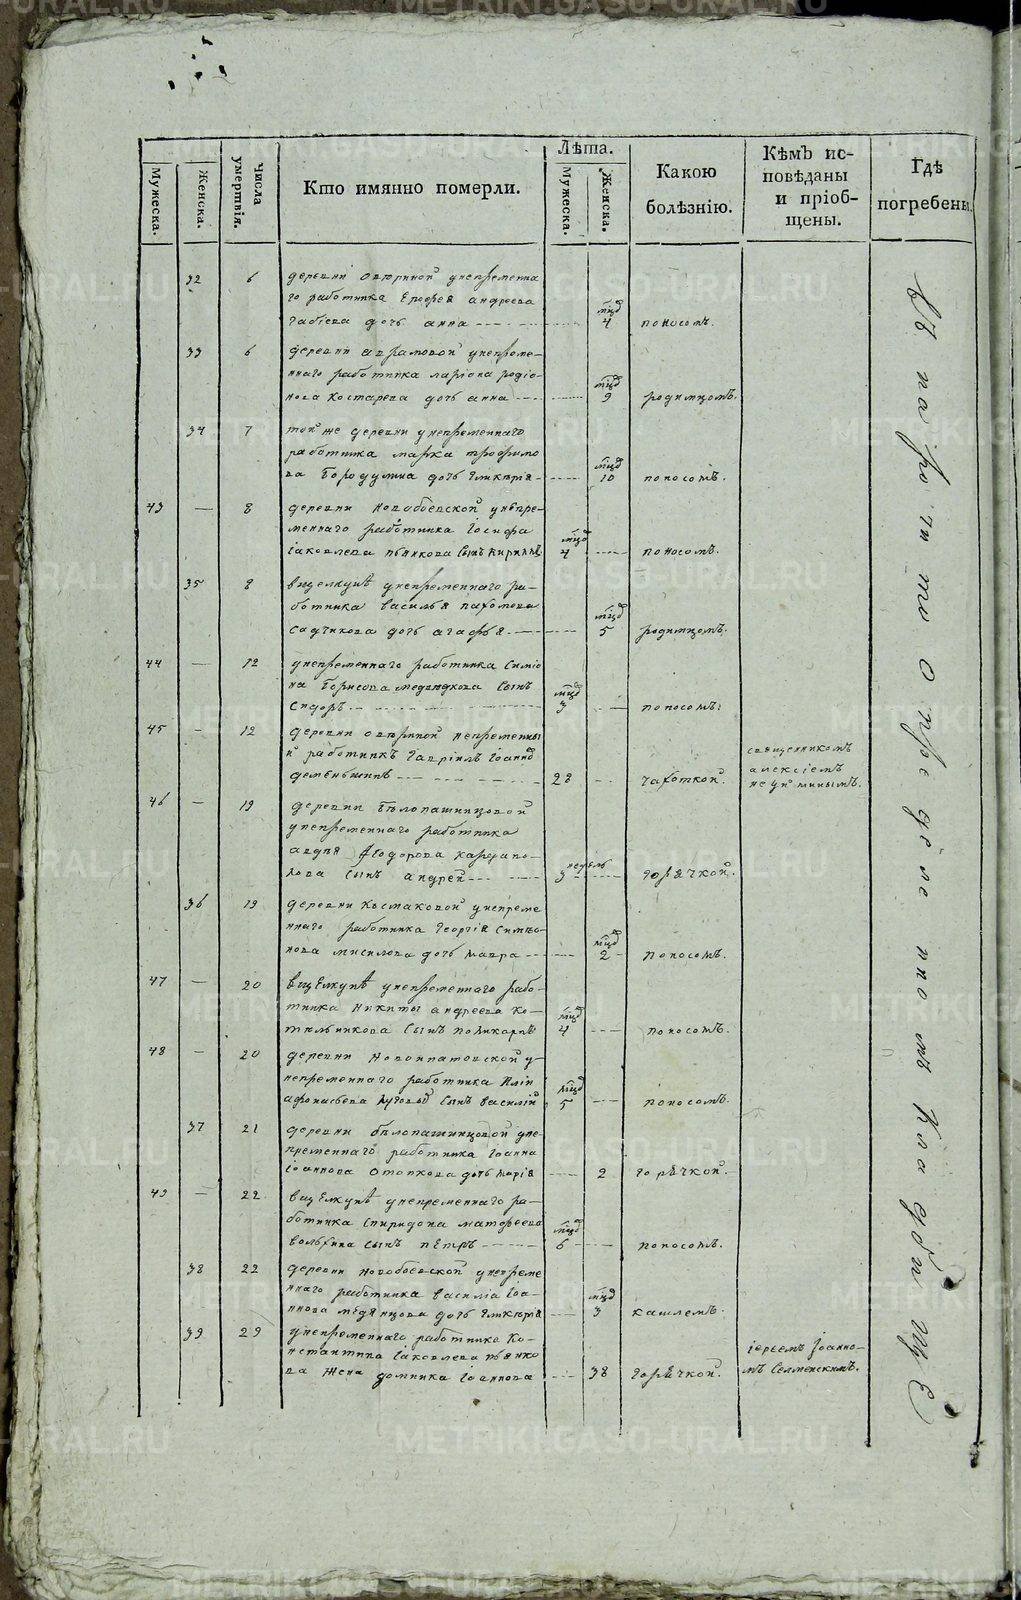 Мужеска.
Женска.
Числа умертвія.
Кто имянно померли.
Лѣта.
Мужеска.
Женска.
Какою болѣзнію.
Кѣмъ ис-
повѣданы
и пріоб-
щены.
Гдѣ
погребены.
32 6 деревни унепременна
го работника андреева
дочь анна мцд 4 поносомъ.
33 6 деревни аврамовой унепреме-
ннаго работника ларіона родіо-
нова костарева дочь анна мцд 9 родимцомъ.
34 7 той же деревни унепременнаго
работника марка трофимо
ва бородулина дочь гликерія мцд 10 поносомъ.
43 — 8 деревни новобоевской унепре-
меннаго работника іосифа
іаковлева пьянкова сынъ кирилъ мцд 4 поносомъ.
35 8 унепременнаго ра-
ботника василья пахомова
садчикова дочь агафья мцд 5 родимцомъ.
44 — 12 унепременнаго работника симіо
на борисова сынъ
сидоръ мцд 3 поносомъ.
45 — 12 деревни непременны
й работникъ гавріилъ іоанно
деменьшинъ 28 чахоткой. священникомъ
алексіемъ
46 — 19 деревни бѣлопашинцовой
унепременнаго работника
авдѣя Ѳеодорова
сынъ андрей 3 недель горячкой.
36 19 деревни космаковой унепреме
ннаго работника георгія симео-
нова дочь мавра мцд 2 поносомъ.
47 — 20 унепременнаго рабо-
тника никиты андреева ко-
тельникова сынъ поликарпъ мцд 4 поносомъ.
48 — 20 деревни новоипатовской у-
непременнаго работника
афонасьева сынъ василій мцд 5 поносомъ.
37 21 деревни бѣлопашинцовой уне-
пременнаго работника іоанна
іоаннова дочь марія 2 горячкой.
49 — 22 унепременнаго ра-
ботника спиридона матфеева
сынъ петръ мцд 6 поносомъ.
38 22 деревни новобоевской унепреме
ннаго работника василіа іоа-
ннова медянцова дочь гликерія мцд 3 кашлемъ.
39 29 унепременнаго работника ко-
нстантина іаковлева пьянко
ва жена домника іоаннова 38 горячкой. іереемъ іоанно-
мъ селменскимъ.